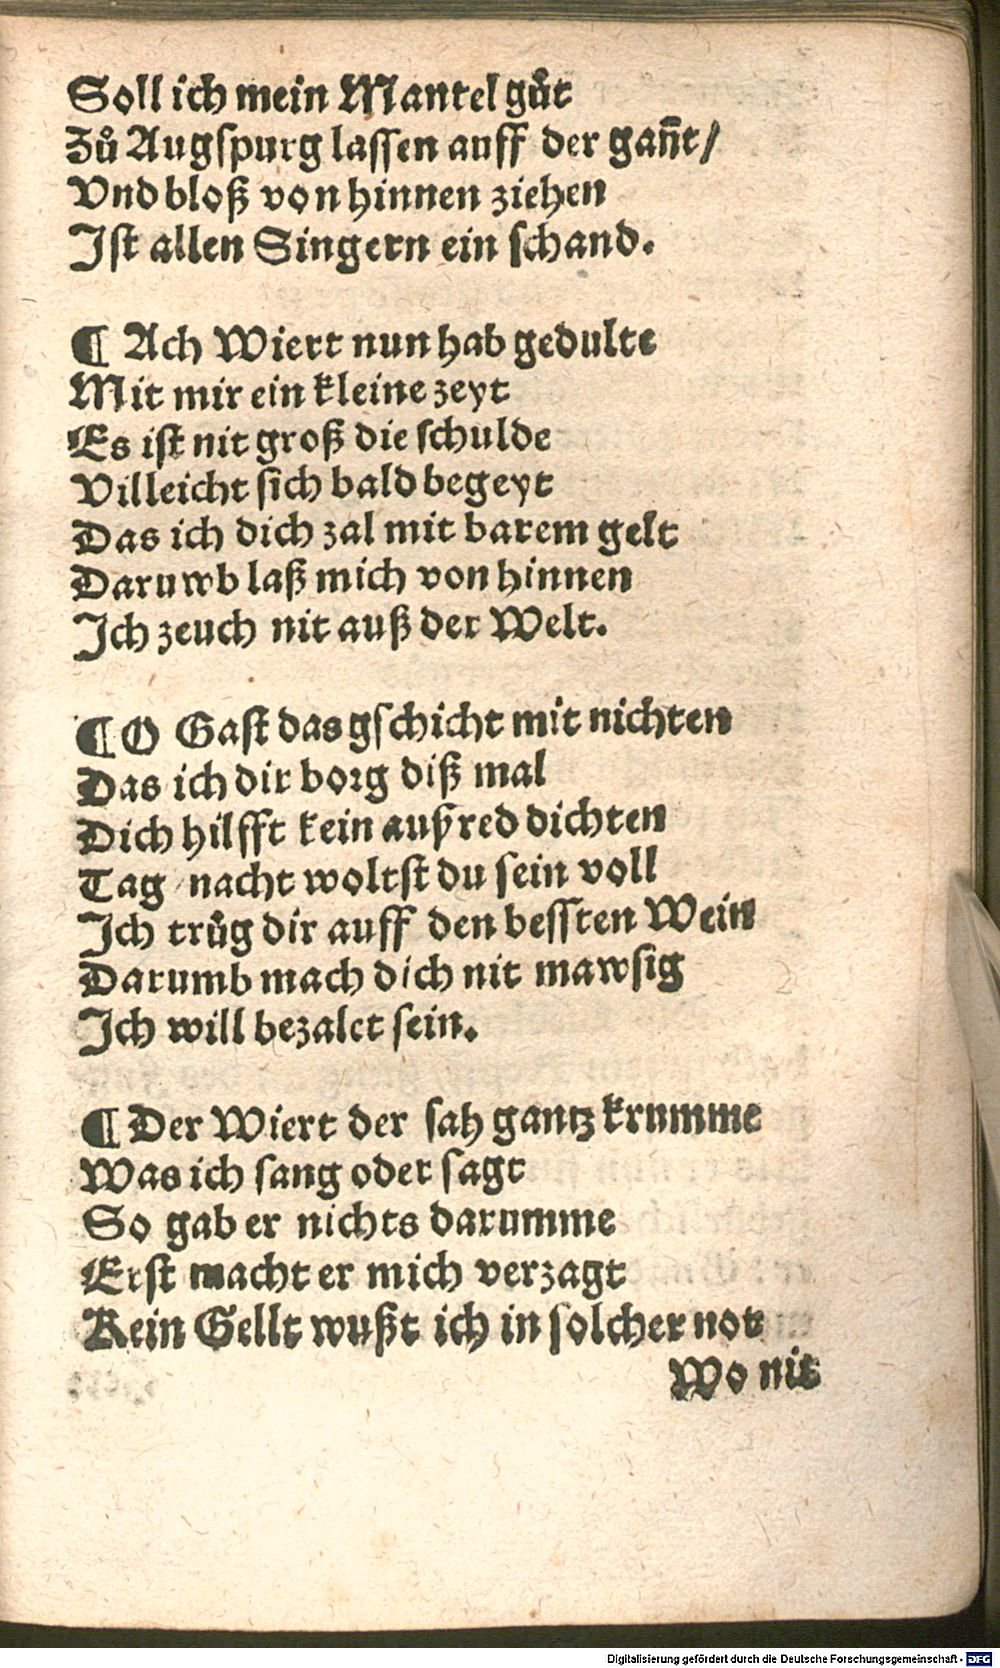 Soll ich mein Mantel gůt
Zů Augspurg lassen auff der gan̄t/
Vnd bloß von hinnen ziehen
Ist allen Singern ein schand.
¶ Ach Wiert nun hab gedulte
Mit mir ein kleine zeyt
Es ist nit groß die schulde
Villeicht sich bald begeyt
Das ich dich zal mit barem gelt
Daruwb laß mich von hinnen
Ich zeuch nit auß der Welt.
¶ O Gast das gschicht mit nichten
Das ich dir borg diß mal
Dich hilfft kein außred dichten
Tag nacht woltst du sein voll
Ich trůg dir auff den bessten Wein
Darumb mach dich nit mawsig
Ich will bezalet sein.
¶ Der Wiert der sah gantz krumme
Was ich sang oder sagt
So gab er nichts darumme
Erst macht er mich verzagt
Kein Gellt wußt ich in solcher not
Wo nit
Digitalisierung gefördert durch die Deutsche Forschungsgemeinschaft - DFG